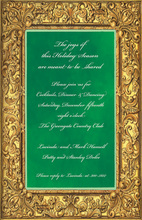 The joys of
this Holiday Season
are meant to be shared
Please join us for
Cocktails, Dinner & Dancing
Saturday, December fifteenth
eight o'clock
The Greengate Country Club
Lucinda and Mark Hamill
Patty and Stanley Duke
Please reply to Lucinda